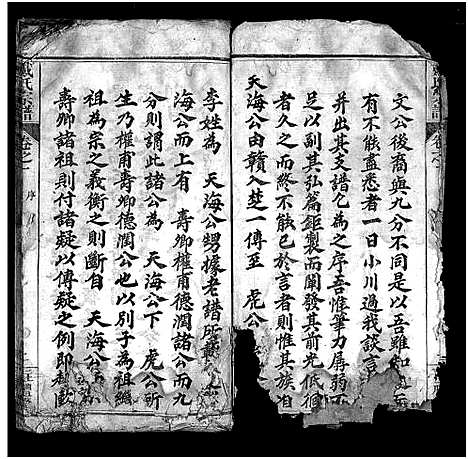 文公後裔與九分不同是以吾雖知
有不能盡悉者一日小川過我談言
并出其支譜乞為之序吾惟筆力孱弱
足以副其弘篇鉅製而闡發其前光低徊
者久之而終不能已於言者則惟其族自
天海公由贛入楚一傳至 虎公
李姓為 天海公甥據老譜所載
海公而上有 壽卿權甫德潤諸公而九
分則謂此諸公為 天海公下 虎公所
生乃權甫壽卿德潤公也以別子為祖繼
祖為宗之義衡之則斷自 天海公
壽卿諸祖則付諸疑以傳疑之例即
氏宗譜
卷之一
序